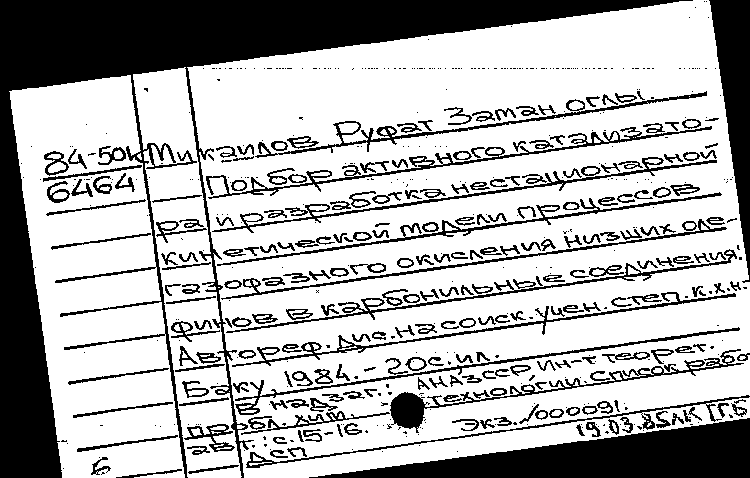 84-50к Микаилов, Руфат Заман оглы.
6464 Подбор активного катализато-
ра и разработка нестационарной
кинетической модели процессов
газофазного окисления низших оле-
финов в карбонильные соединения:
Автореф. дис. на соиск. учен. степ. к.х.н-
Баку, 1984. - 20с. ил.
В надзаг.: АН АзССР Ин-т теорет.
пробл. хим. технологии. Список рабо
авт.: с. 15-16. Экз. /000091.
6 ДСП 19.03.85